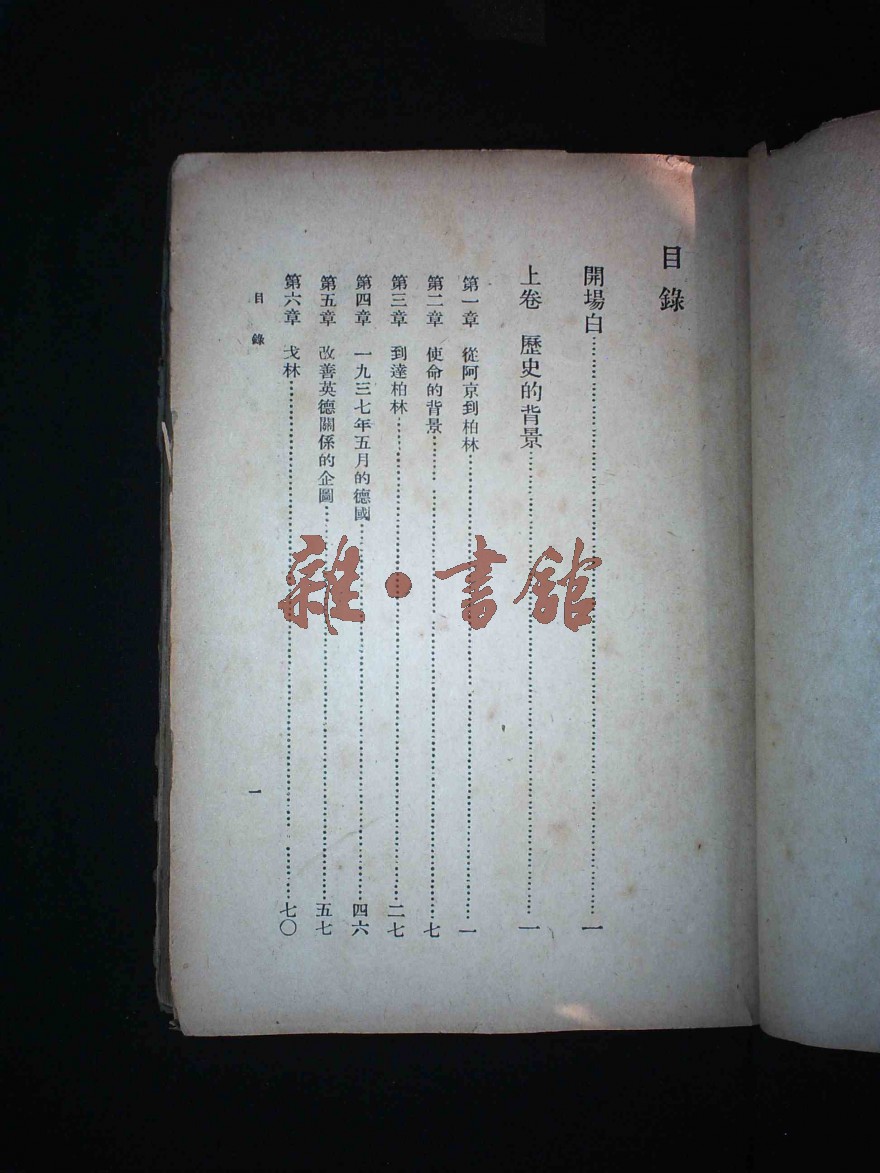 目錄
開場白……一
上卷 歷史的背景……一
第一章 從阿京到柏林……一
第二章 使命的背景……七
第三章 到達柏林……二七
第四章 一九三七年五月的德國……四六
第五章 改善英德關係的企圖……五七
第六章 戈林……七〇
目錄 一
雜·書館